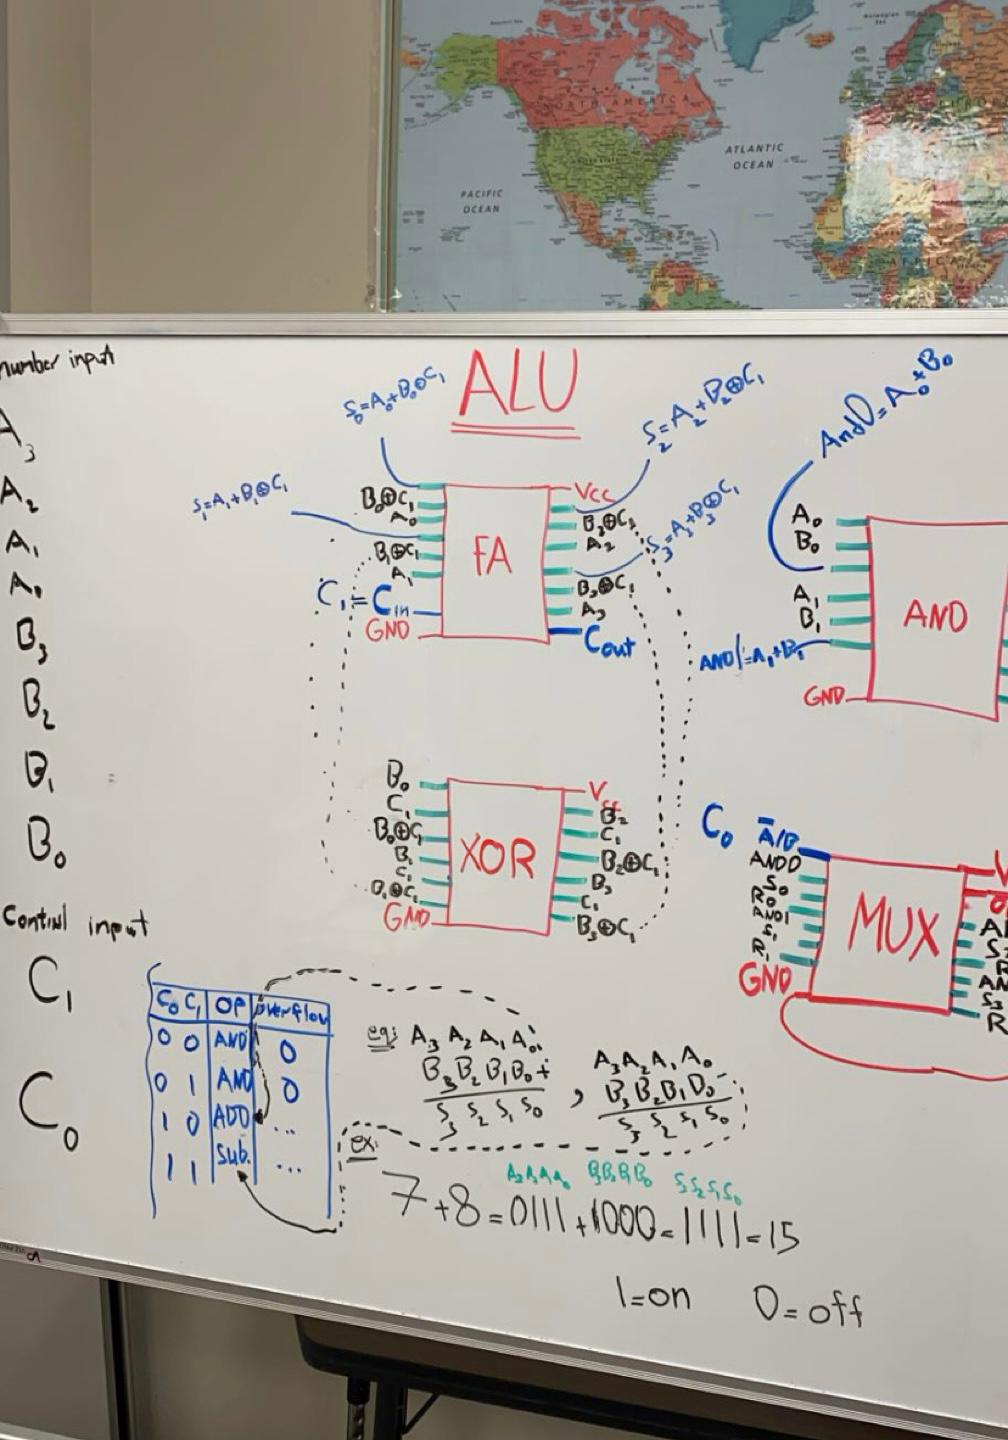 NORTH AMERICA
ATLANTIC
OCEAN
PACIFIC
OCEAN
AFRICA
number input
A₃
A₂
A₁
A₀
B₃
B₂
B₁
B₀
Control input
C₁
C₀
ALU
S₀=A₀+B₀⊕C₁
S₂=A₂+B₂⊕C₁
S₁=A₁+B₁⊕C₁
S₃=A₃+B₃⊕C₁
B₀⊕C₁
A₀
B₁⊕C₁
A₁
C₁=Cin
GND
FA
Vcc
B₂⊕C₁
A₂
B₃⊕C₁
A₃
Cout
And0=A₀+B₀
A₀
B₀
A₁
B₁
AND1=A₁+B₁
GND
AND
B₀
C₁
B₀⊕C₁
B₁
C₁
B₁⊕C₁
GND
XOR
Vcc
B₂
C₁
B₂⊕C₁
B₃
C₁
B₃⊕C₁
C₀ A̅/B
AND0
S₀
R₀
AND1
S₁
R₁
GND
MUX
C₀ C₁ OP overflow
0 0 AND 0
0 1 AND 0
1 0 ADD ...
1 1 Sub. ...
eg: A₃ A₂ A₁ A₀
B₃ B₂ B₁ B₀ +
S₃ S₂ S₁ S₀
, A₃ A₂ A₁ A₀
B₃ B₂ B₁ B₀ -
S₃ S₂ S₁ S₀
ex:
A₃A₂A₁A₀ B₃B₂B₁B₀ S₃S₂S₁S₀
7+8=0111+1000=1111=15
1=on 0=off